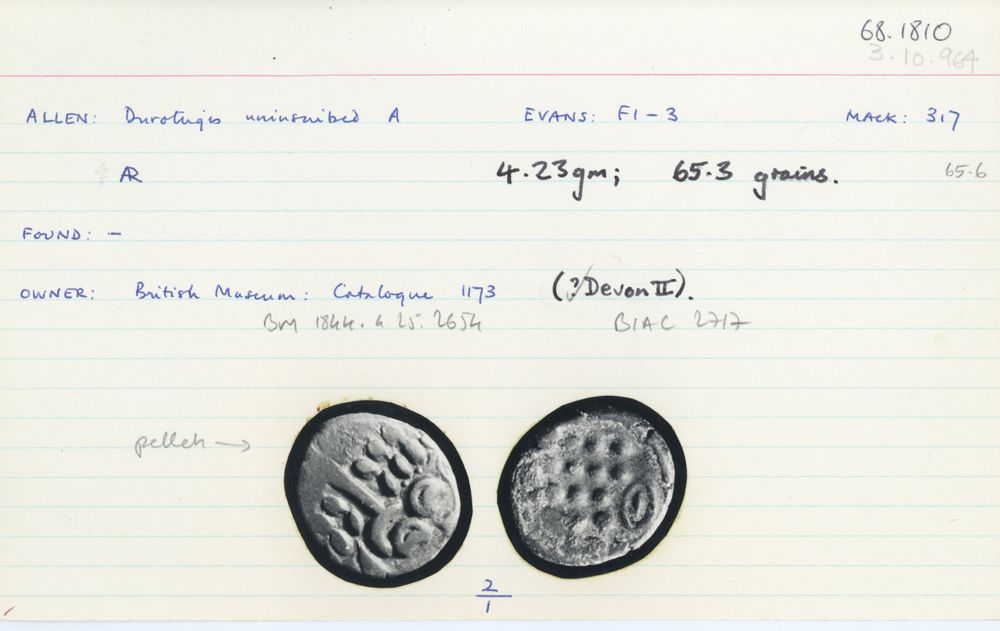 68.1810
3.10.964
ALLEN: Durotriges uninscribed A EVANS: F1-3 MACK: 317
AR 4.23gm; 65.3 grains. 65.6
FOUND: -
OWNER: British Museum: Catalogue 1173 (? Devon II).
BM 1844.4.25.2654 BIAC 2717
pellets →
2/1